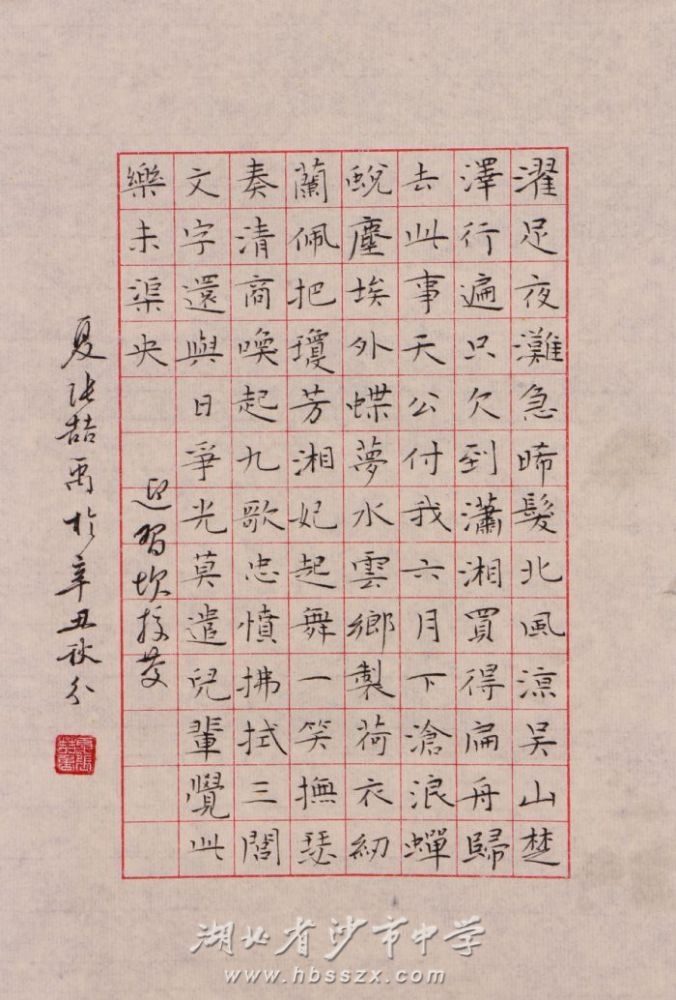 濯足夜灘急晞髮北風涼吳山楚
澤行遍只欠到瀟湘買得扁舟歸
去此事天公付我六月下滄浪蟬
蛻塵埃外蝶夢水雲鄉製荷衣紉
蘭佩把瓊芳湘妃起舞一笑撫瑟
奏清商喚起九歌忠憤拂拭三閭
文字還與日爭光莫遣兒輩覺此
樂未渠央
迎習坎校慶
夏張喆禹於辛丑秋分
湖北省沙市中学
www.hbsszx.com